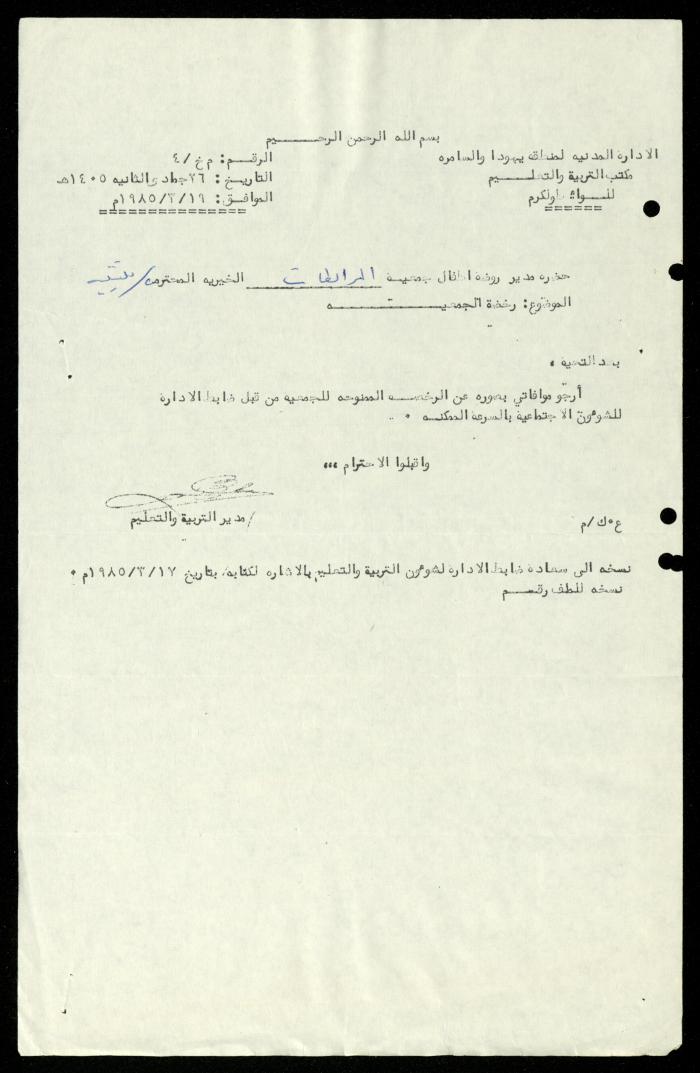 بسم الله الرحمن الرحيم
الادارة المدنيه لمنطقه يهودا والسامره
مكتب التربية والتعليم
للواء طولكرم
الرقم: م خ/٤
التاريخ: ٢٦ جمادى الثانيه ١٤٠٥هـ
الموافق: ١٩٨٥/٣/١٩م
حضره مدير روضة اطفال جمعية المرابطات الخيريه المحترم/ قلقيلية
الموضوع: رخصة الجمعيه
بعد التحية ،
أرجو موافاتي بصوره عن الرخصه الممنوحه للجمعيه من قبل ضابط الادارة
للشوءون الاجتماعية بالسرعة الممكنه .
واقبلوا الاحترام ،،،
/ مدير التربية والتعليم
ع٠ك/م
نسخه الى سعادة ضابط الادارة لشوءون التربية والتعليم بالاشاره لكتابه بتاريخ ١٩٨٥/٣/١٧م ٠
نسخه للطف رقم